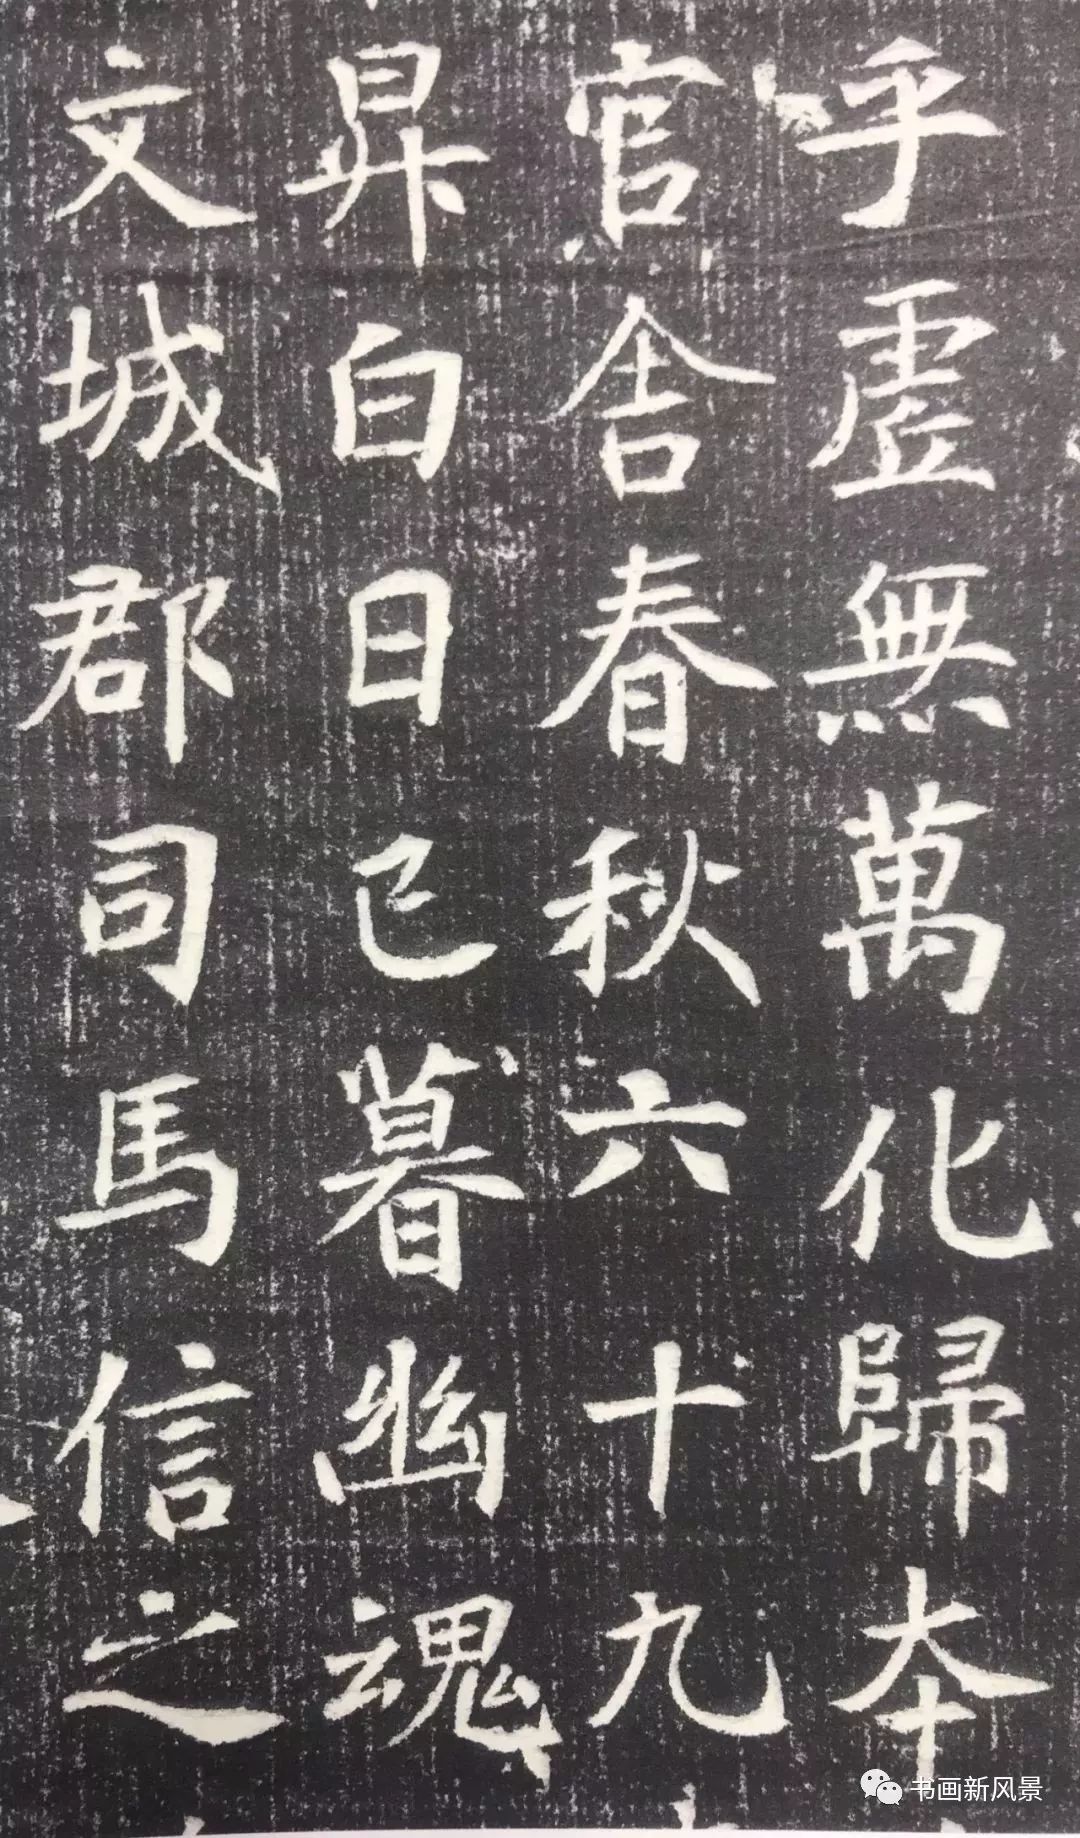 乎虛無萬化歸本
官舍春秋六十九
昇白日已暮幽魂
文城郡司馬信之
书画新风景